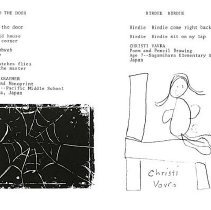 THE DOOR
the door
house
corner
catches flies
the master
and Monoprint
Pacific Middle School
Japan
BIRDIE BIRDIE
Birdie Birdie come right back
Birdie Birdie sit on my lap
CHRISTI VAVRA
Poem and Pencil Drawing
Age 7--Sagamihara Elementary S
Japan
Christi
Vavra